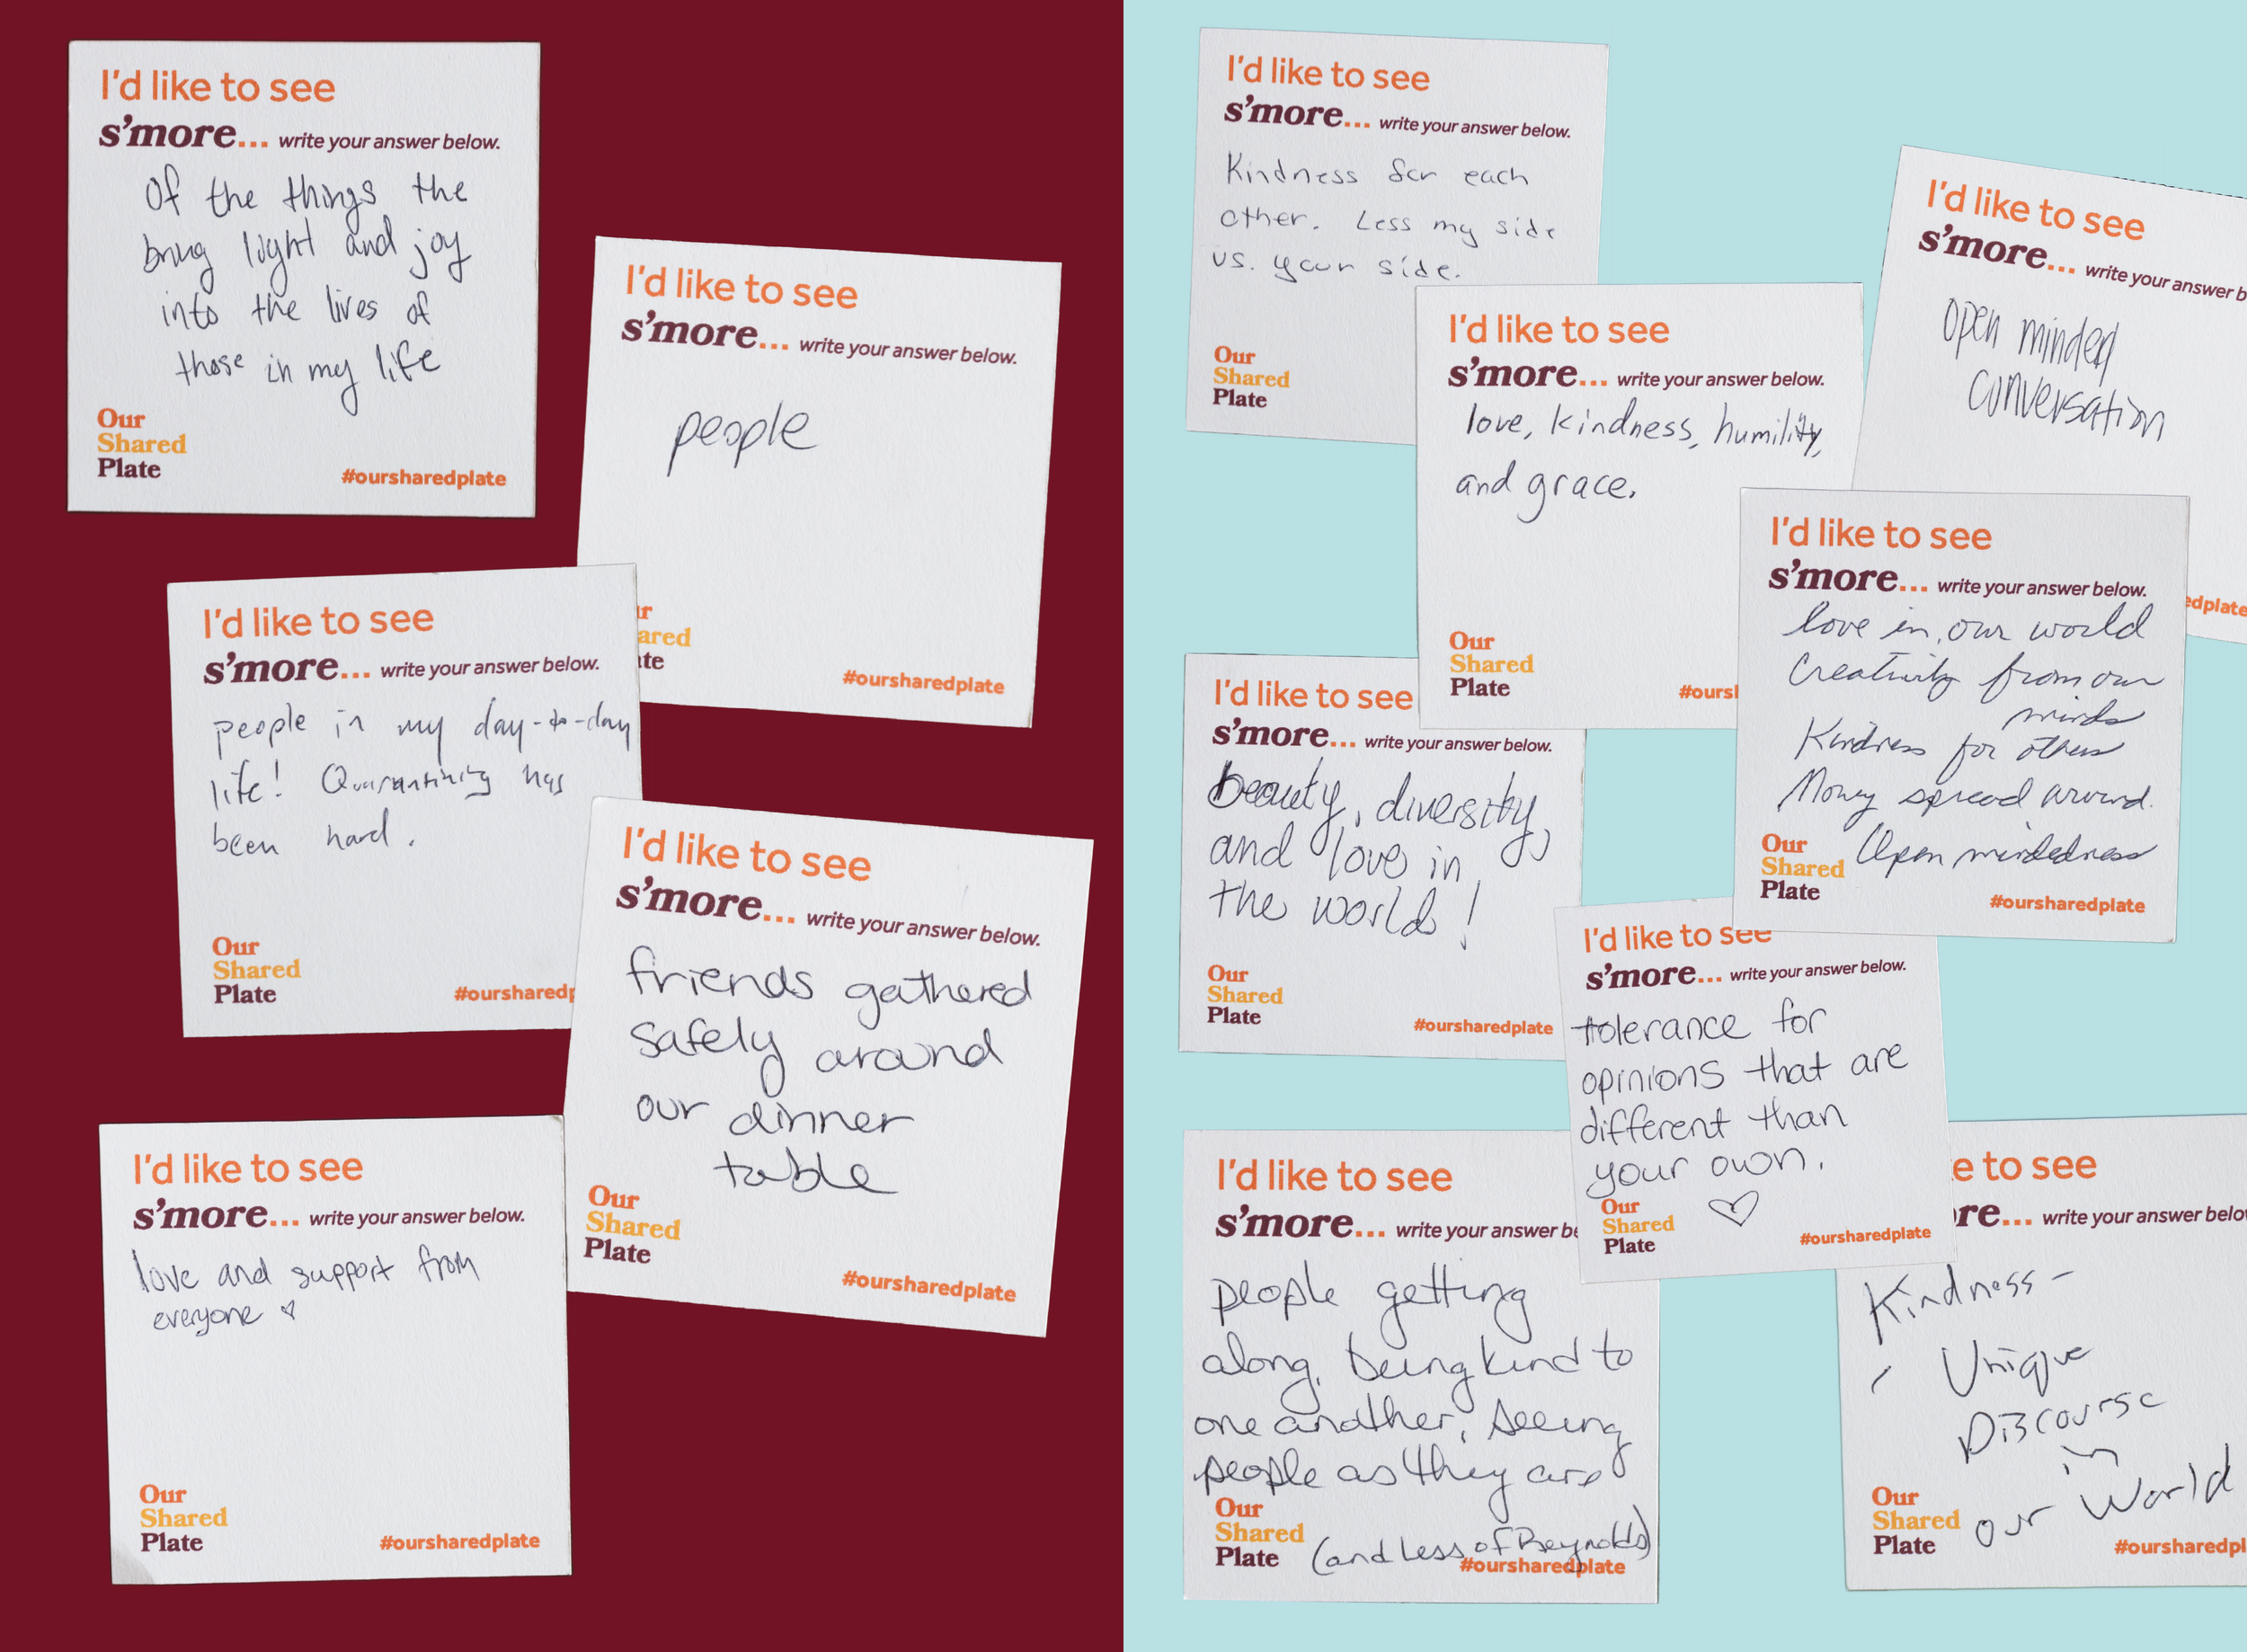 I'd like to see
s'more... write your answer below.
Of the things the
bring light and joy
into the lives of
those in my life
Our
Shared
Plate
#oursharedplate
I'd like to see
s'more... write your answer below.
people
ur
ared
te
#oursharedplate
I'd like to see
s'more... write your answer below.
people in my day-to-day
life! Quarantining has
been hard.
Our
Shared
Plate
#oursharedp
I'd like to see
s'more... write your answer below.
friends gathered
safely around
our dinner
table
Our
Shared
Plate
#oursharedplate
I'd like to see
s'more... write your answer below.
love and support from
everyone
Our
Shared
Plate
#oursharedplate
I'd like to see
s'more... write your answer below.
Kindness for each
other. Less my side
vs. your side.
Our
Shared
Plate
I'd like to see
s'more... write your answer b
open minded
conversation
edplate
I'd like to see
s'more... write your answer below.
love, kindness, humility,
and grace.
Our
Shared
Plate
#oursl
I'd like to see
s'more... write your answer below.
love in our world
Creativity from our
minds
Kindness for others
Money spread around.
Open mindedness
Our
Shared
Plate
#oursharedplate
I'd like to see
s'more... write your answer below.
beauty, diversity,
and love in
the world!
Our
Shared
Plate
#oursharedplate
I'd like to see
s'more... write your answer below.
tolerance for
opinions that are
different than
your own.
Our
Shared
Plate
#oursharedplate
I'd like to see
s'more... write your answer be
people getting
along, being kind to
one another, seeing
people as they are
(and Less of Reynolds)
Our
Shared
Plate
#oursharedplate
e to see
re... write your answer belo
Kindness -
- Unique
Discourse
in
our World
Our
Shared
Plate
#oursharedpl